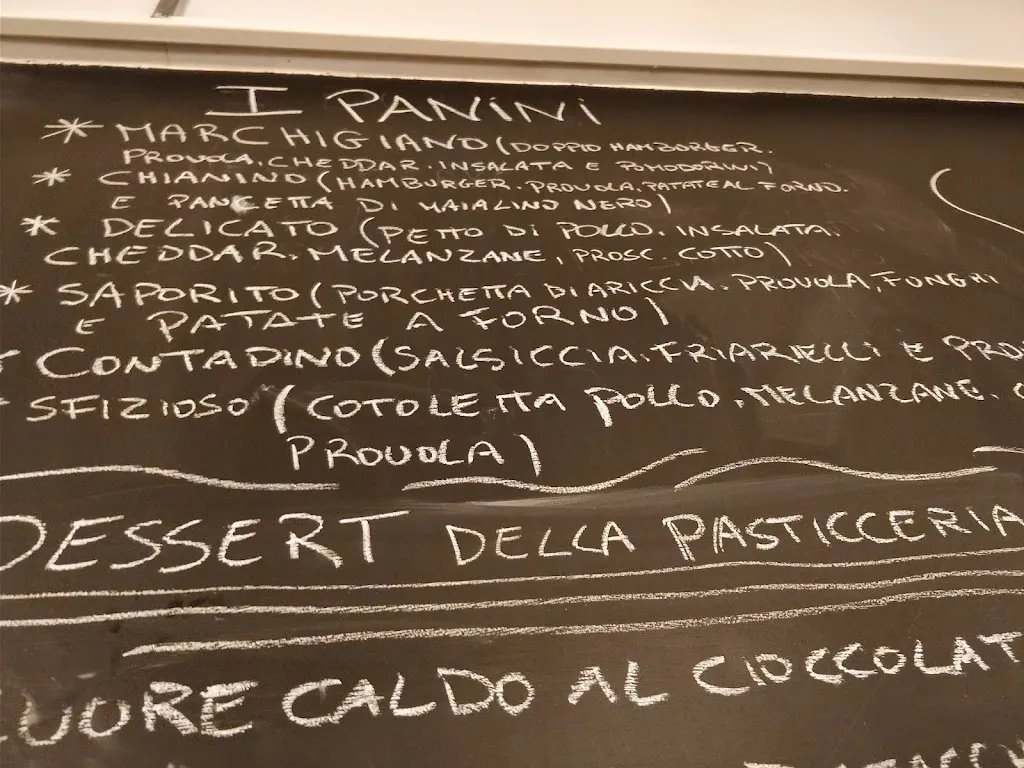 I PANINI
* MARCHIGIANO (DOPPIO HAMBURGER.
PROVOLA. CHEDDAR. INSALATA E POMODORINI)
* CHIANINO (HAMBURGER. PROVOLA. PATATE AL FORNO.
E PANCETTA DI MAIALINO NERO)
* DELICATO (PETTO DI POLLO. INSALATA.
CHEDDAR. MELANZANE, PROSC. COTTO)
* SAPORITO (PORCHETTA DI ARICCIA. PROVOLA, FUNGHI
E PATATE A FORNO)
* CONTADINO (SALSICCIA. FRIARIELLI E PROV
* SFIZIOSO (COTOLETTA POLLO. MELANZANE.
PROVOLA)
DESSERT DELLA PASTICCERIA
CUORE CALDO AL CIOCCOLAT